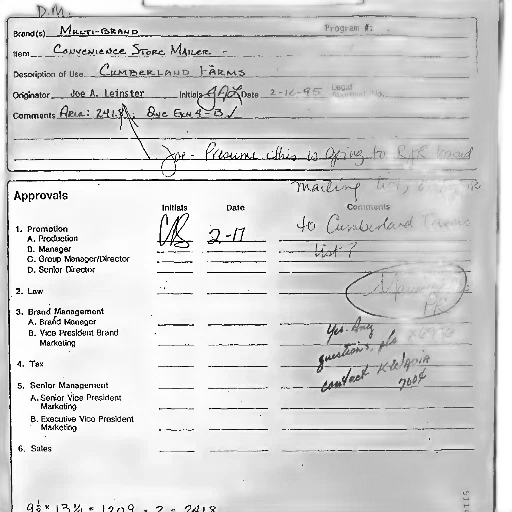 D.M.
Brand(s) MULTI-BRAND Program #:
Item CONVENIENCE STORE MAILER -
Description of Use CUMBERLAND FARMS
Originator Joe A. Leinster Initials JAL Date 2-16-95 Legal
Comments AREA: 2418
Joe - Presume this is going to RJR
mailing list,
Approvals
Initials Date Comments
1. Promotion
A. Production CB 2-17 to Cumberland
B. Manager list?
C. Group Manager/Director
D. Senior Director
2. Law
3. Brand Management
A. Brand Manager
B. Vice President Brand
Marketing
Yes. Any
questions, pls
contact K
7004
4. Tax
5. Senior Management
A. Senior Vice President
Marketing
B. Executive Vice President
Marketing
6. Sales
= 1209 × 2 = 2418